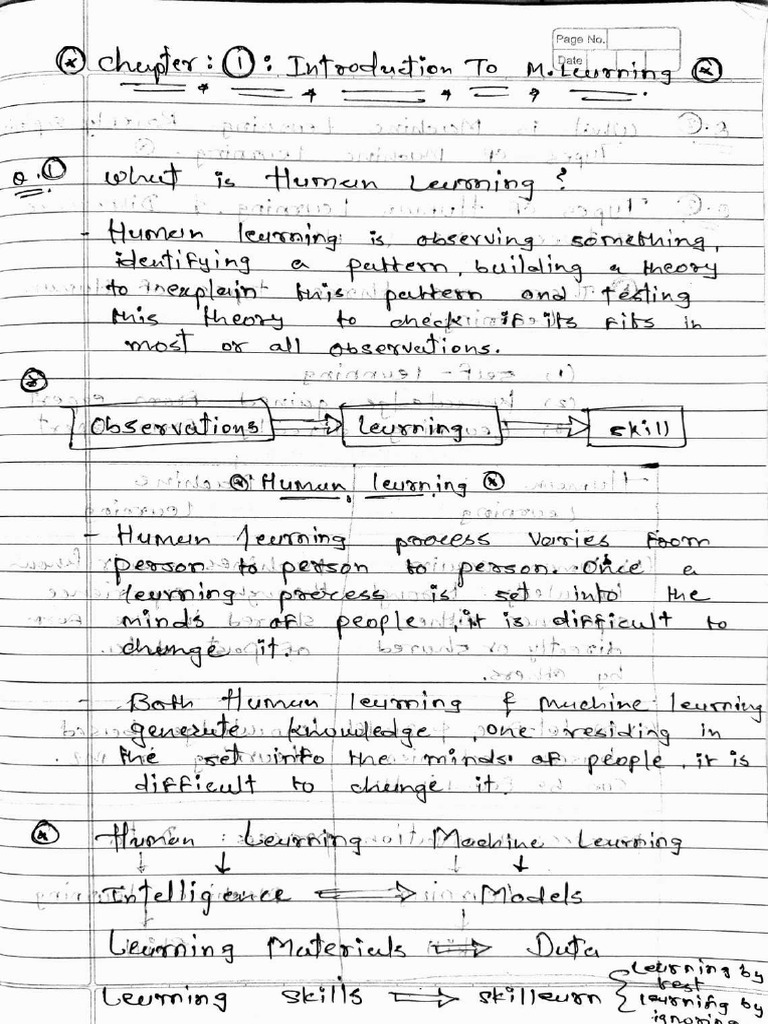 Page No.
Date
Chapter: ①: Introduction To M. Learning
Q.① What is Human Learning?
- Human learning is observing something,
identifying a pattern, building a theory
to explain this pattern and testing
this theory to check if its fits in
most or all observations.
Observations ⇒ Learning ⇒ skill
Human learning
- Human learning process varies from
person to person to person. Once a
learning process is set into the
minds of people, it is difficult to
change it.
- Both Human learning & Machine learning
generate knowledge, one residing in
the set into the minds of people, it is
difficult to change it.
Human Learning Machine Learning
↓ ↓ ↓ ↓
Intelligence ⇒ Models
Learning Materials ⇒ Data
Learning skills ⇒ skillearn { Learning by
rest
learning by
ignoring